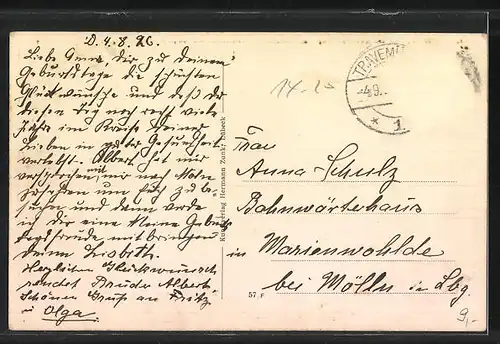 D. 4. 8. 26.
Liebe Anna, dir zu deinem
Geburtstage die schönsten
Glückwünsche und daß du
diesen Tag noch recht viele
Jahre im Kreise deiner
Lieben in guter Gesundheit
verlebst. Albert hat mir
versprochen mit mir nach Mölln
zu fahren und Euch zu be-
suchen und dann werde
ich dir eine kleine Geburts-
tagsfreude mitbringen
deine Lisbeth.
Herzlichen Glückwunsch
sendet Bruder Albert
Schönen Gruß an Fritz
Olga
Kunstverlag Hermann Lübeck
57 F
14.20
TRAVEM
4.9.
* 1
Frau
Anna Schulz
Bahnwärterhaus
in Marienwohlde
bei Mölln in Lbg.
9,-